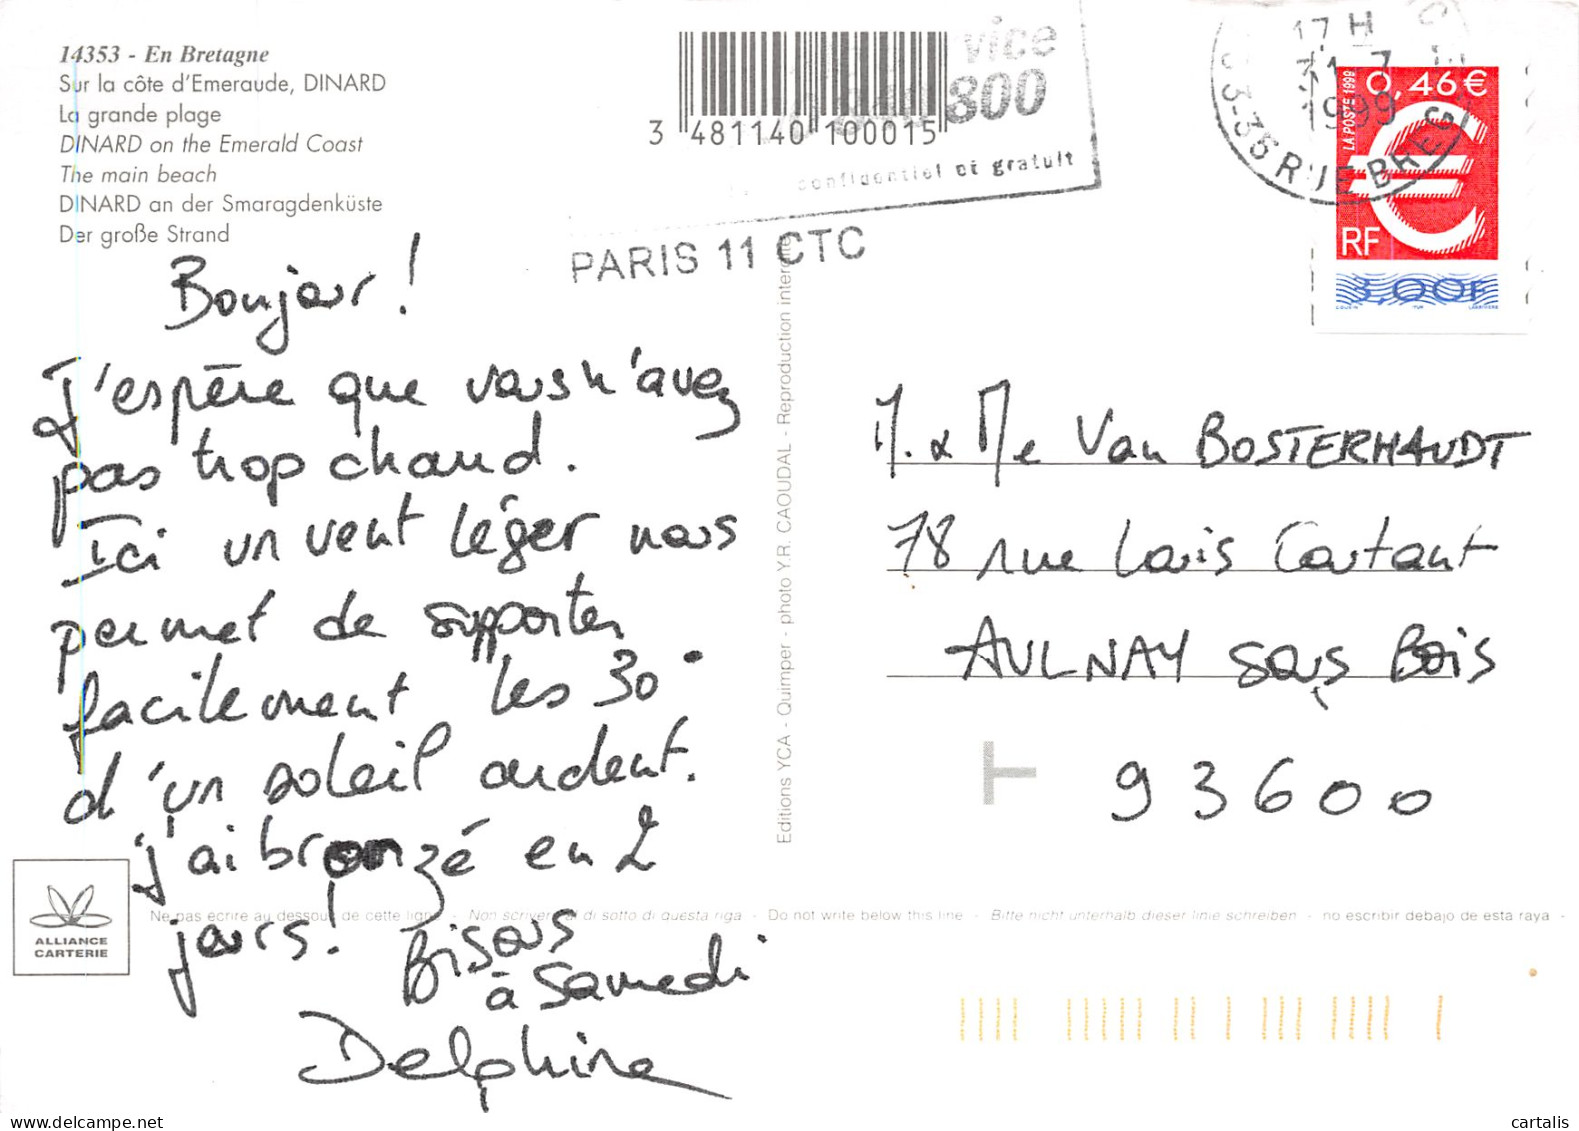 14353 - En Bretagne
Sur la côte d'Emeraude, DINARD
La grande plage
DINARD on the Emerald Coast
The main beach
DINARD an der Smaragdenküste
Der große Strand
3 481140 100015
vice
800
confidentiel et gratuit
PARIS 11 CTC
17 H
31-7
1999
RUE BREG
LA POSTE 1999
0,46€
RF
3,00F
Bonjour !
J'espère que vous n'avez
pas trop chaud.
Ici un vent léger nous
permet de supporter
facilement les 30°
d'un soleil ardent.
J'ai bronzé en 2
jours !
Bisous
à samedi
Delphine
Editions YCA - Quimper - photo Y.R. CAOUDAL - Reproduction interdite
M. & Me Van BOSTERHAUDT
78 rue Louis Coutant
AULNAY sous Bois
T
93600
ALLIANCE
CARTERIE
Ne pas écrire au dessous de cette ligne - Non scrivere al di sotto di questa riga - Do not write below this line - Bitte nicht unterhalb dieser linie schreiben - no escribir debajo de esta raya -
cartalis
delcampe.net